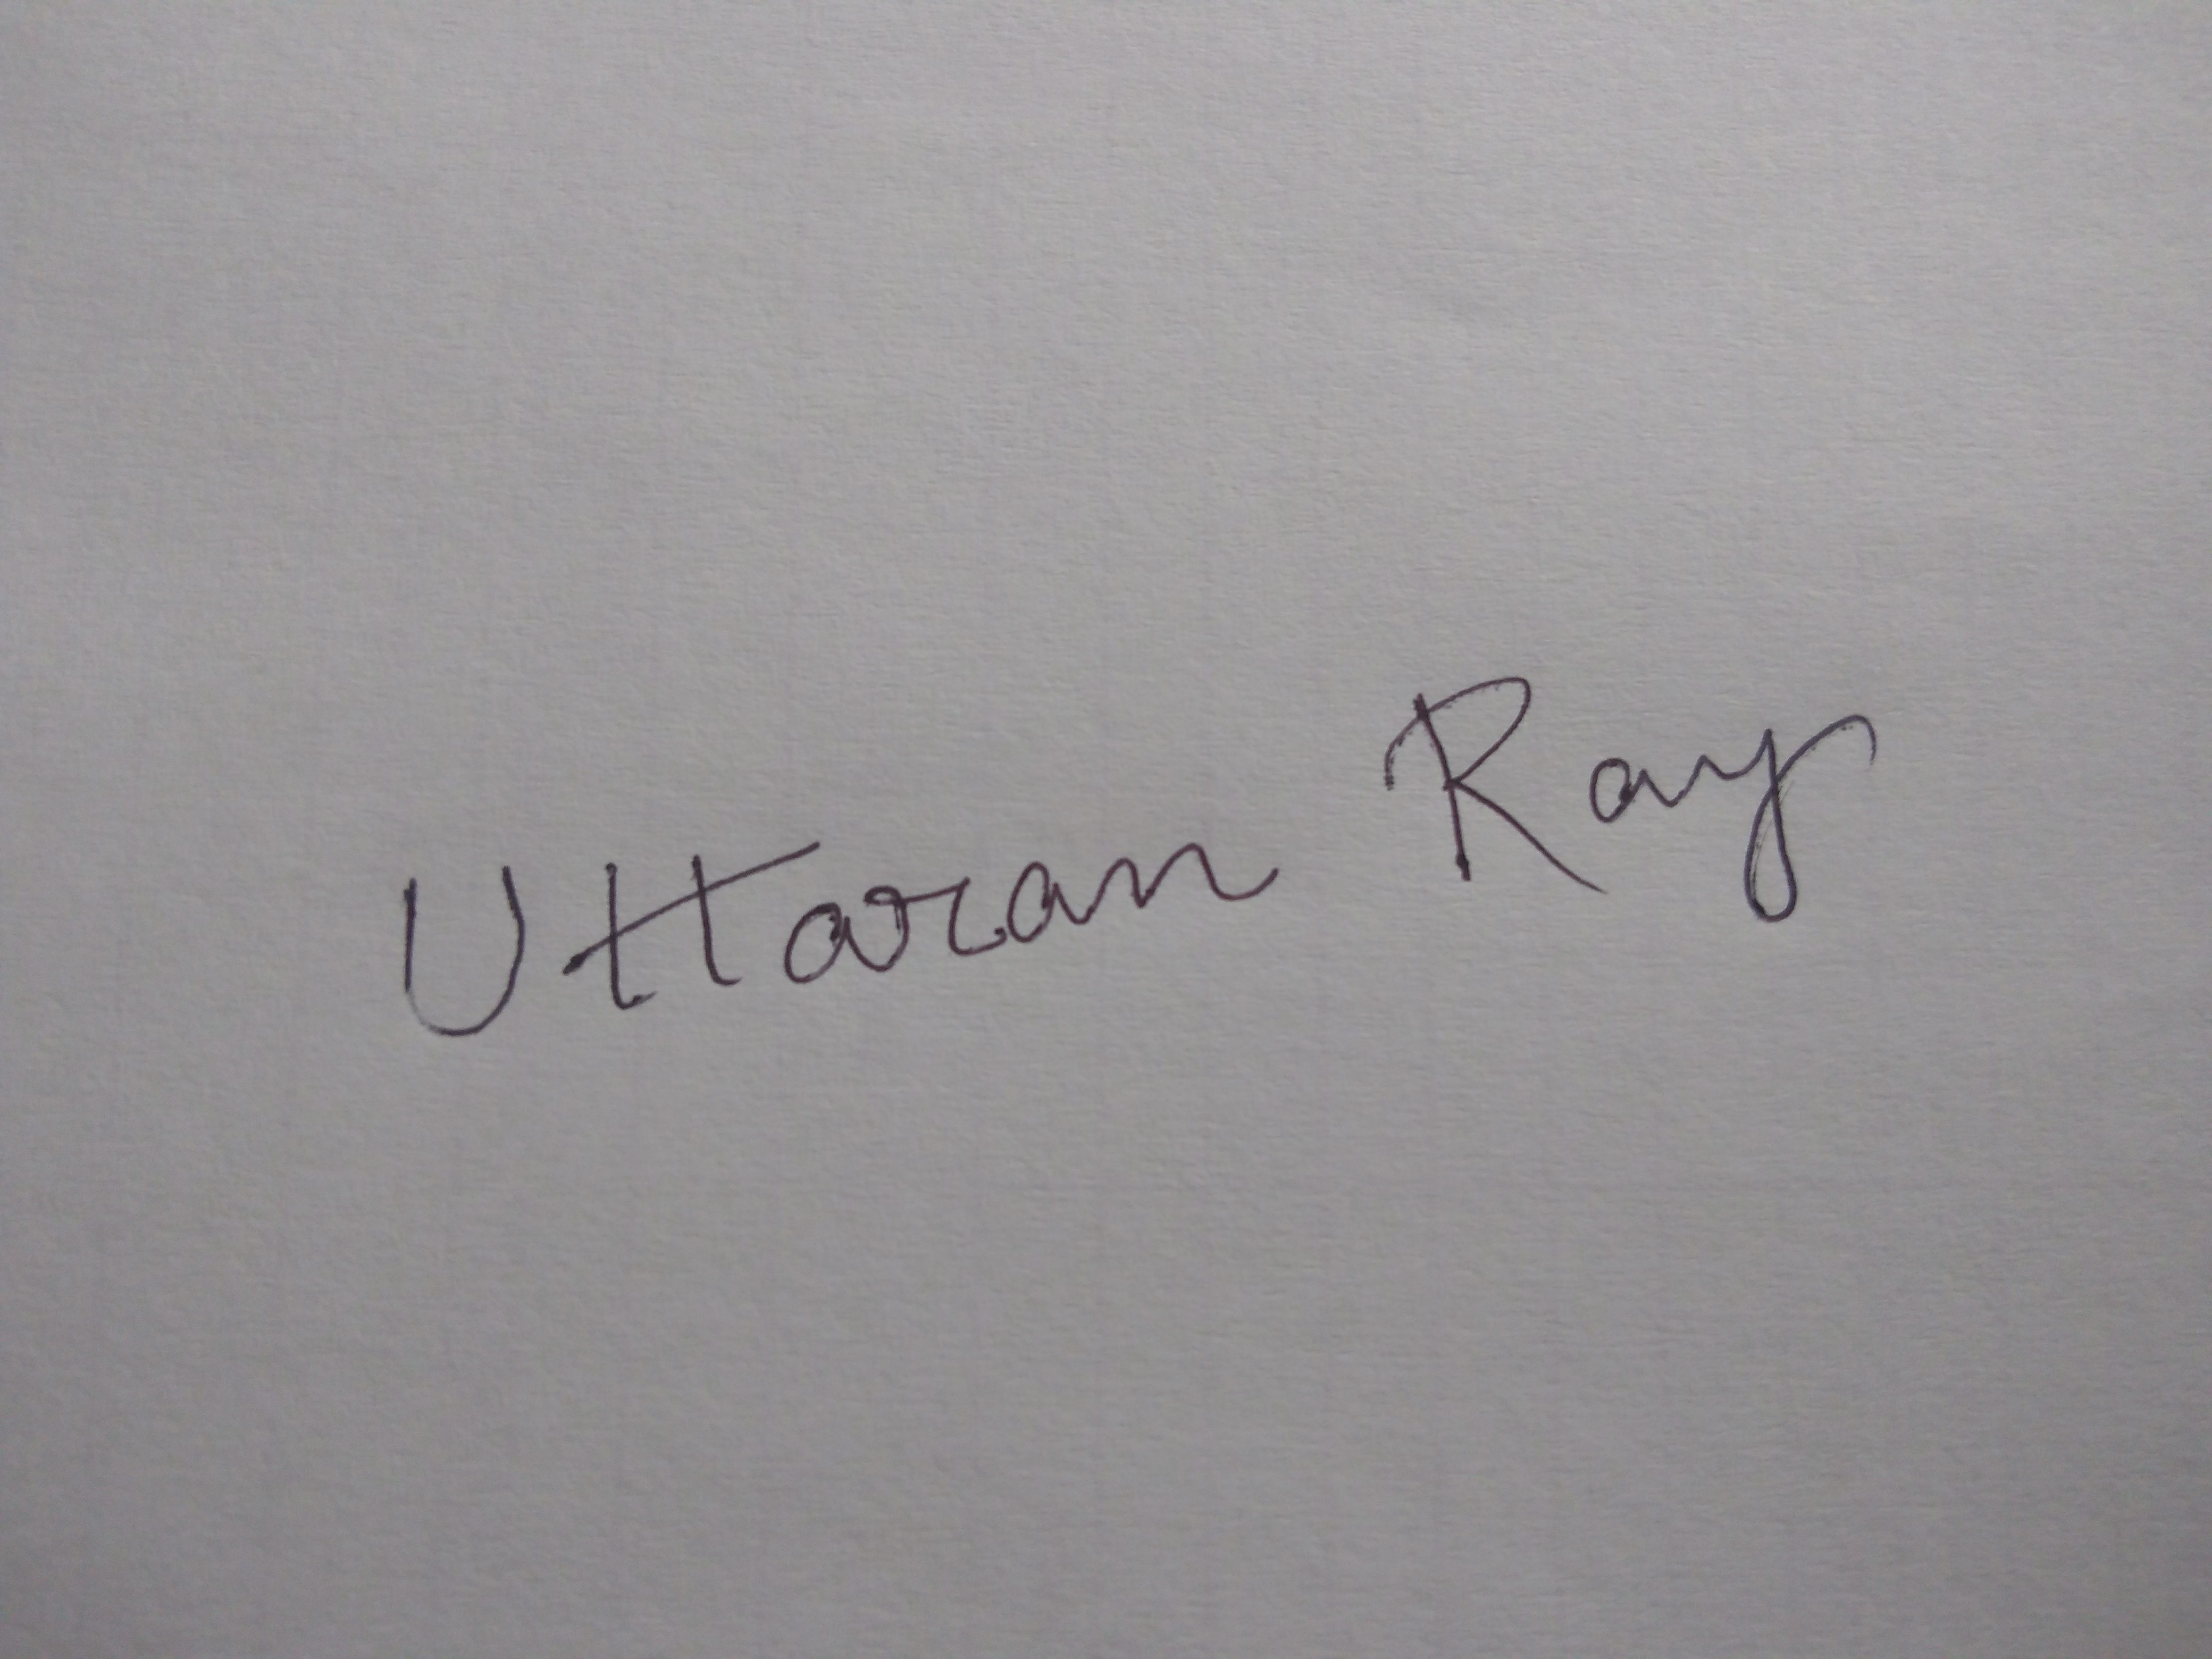 Uttaran Ray